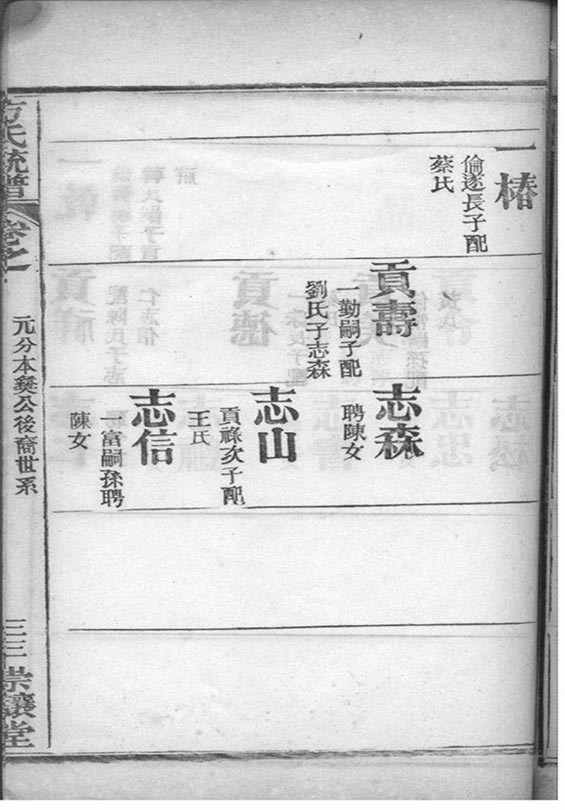 一椿
倫遂長子配
蔡氏
貢壽
一勤嗣子配
劉氏子志森
志森
聘陳女
志山
貢祿次子配
王氏
志信
一富嗣孫聘
陳女
方氏統譜
卷之一
元分本㷀公後裔世系
三三
崇讓堂